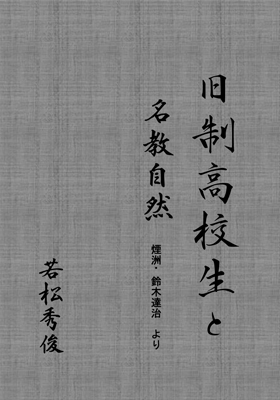 旧制高校生と
名教自然
煙洲・鈴木達治 より
若松秀俊